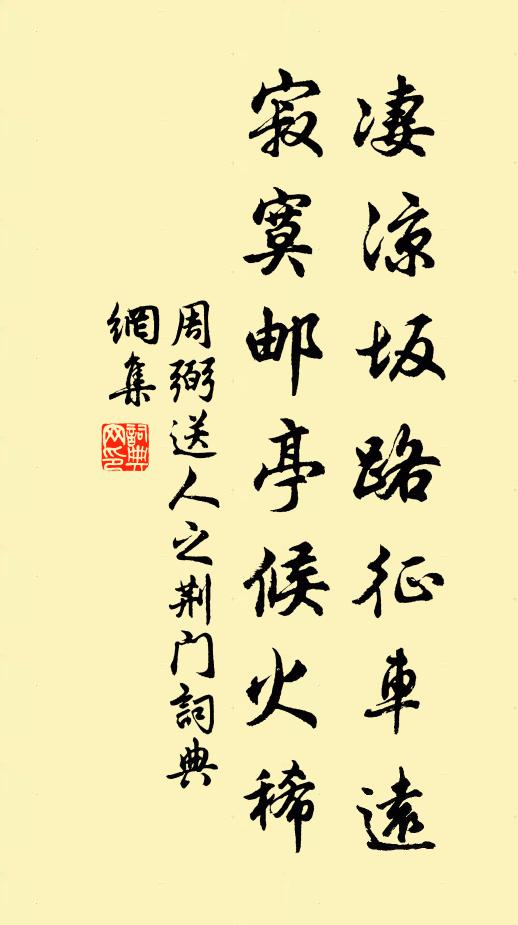 凄涼坂路征車遠
寂寞邮亭候火稀
周弼送人之荆门詞典
網集
詞典
网印